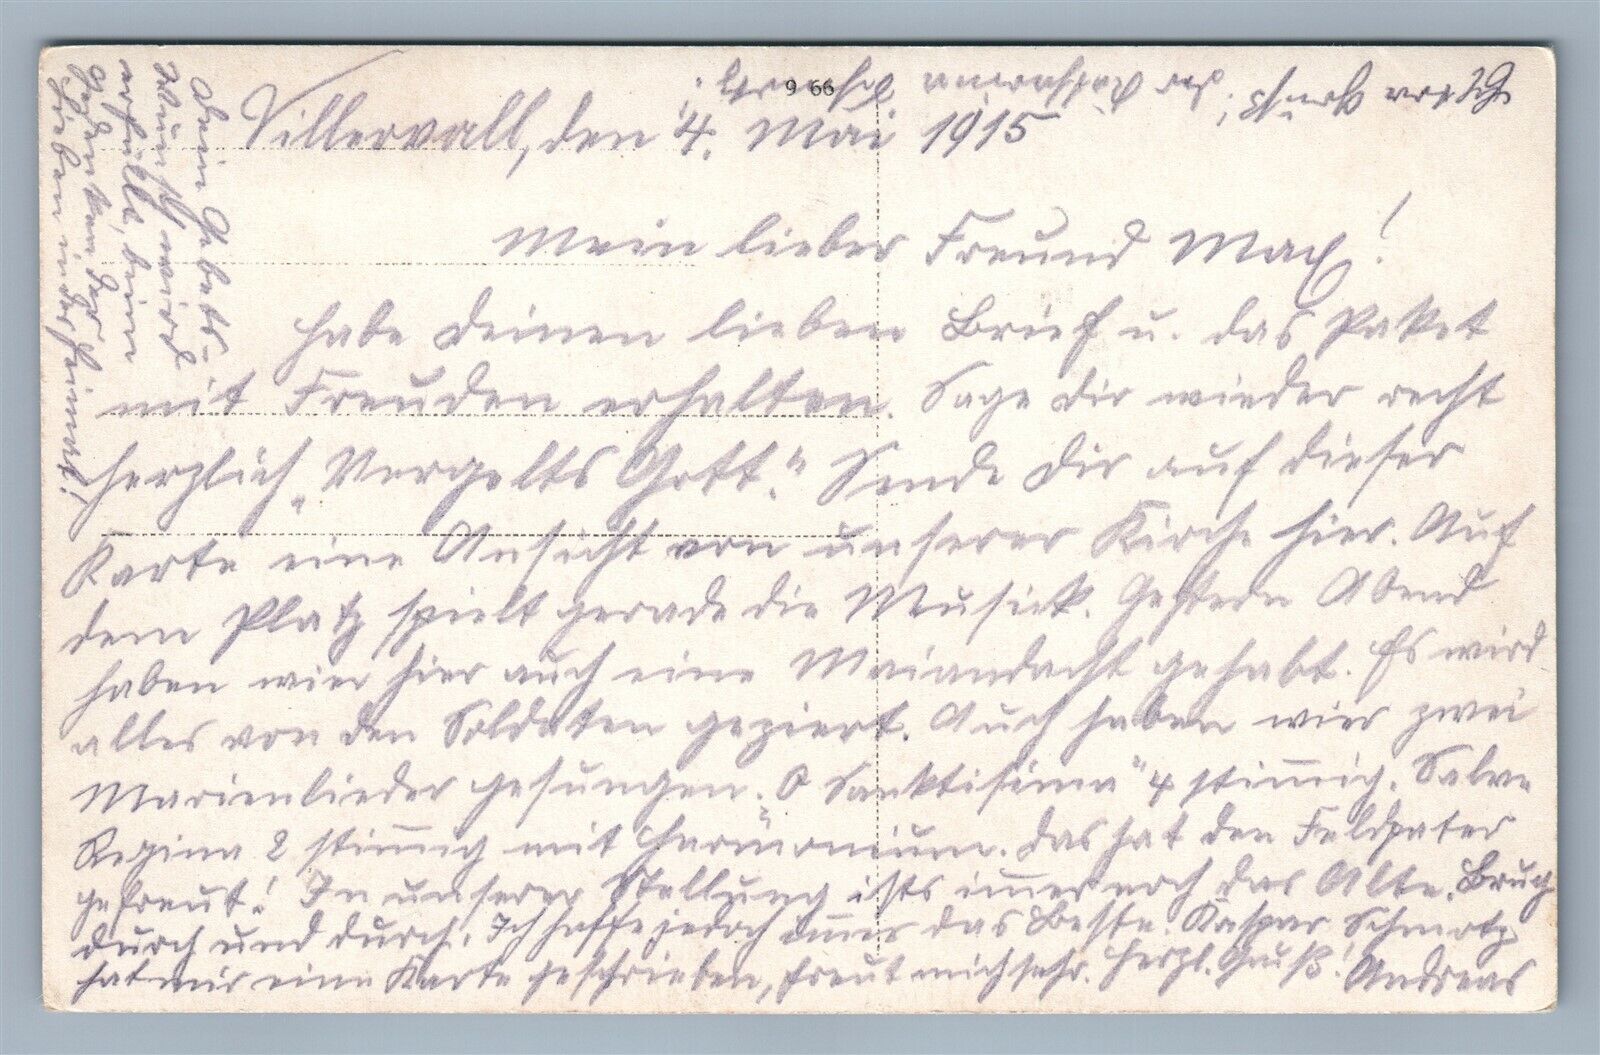 9 66
Villervall, den 4. Mai 1915
Mein lieber Freund Max!
habe deinen lieben Brief u. das Paket
mit Freuden erhalten. Sage dir wieder recht
herzlich „Vergelts Gott.“ Sende dir auf dieser
Karte eine Ansicht von unserer Kirche hier. Auf
dem Platz spielt gerade die Musick. Gestern Abend
haben wier hier auch eine Maiandacht gehabt. Es wird
alles von den Soldaten geziert. Auch haben wier zwei
Marienlieder gesungen. „O Sanktisima“ 4 stim̅ig. Salve
Regina 2 stim̅ig mit Harmonium. Das hat den Feldpater
gefreut! In unserer Stellung ists im̅er noch das Alte. Brug
durch und durch. Ich hoffe jedoch im̅er das Beste. Kaspar Schmotz
hat mir eine Karte geschrieben, freut mich sehr. Herzl. Gruß! Andreas
Dein Gebets-
wunsch wird
erfüllt, deine
Gedenken der
Lieben in der Heimat!